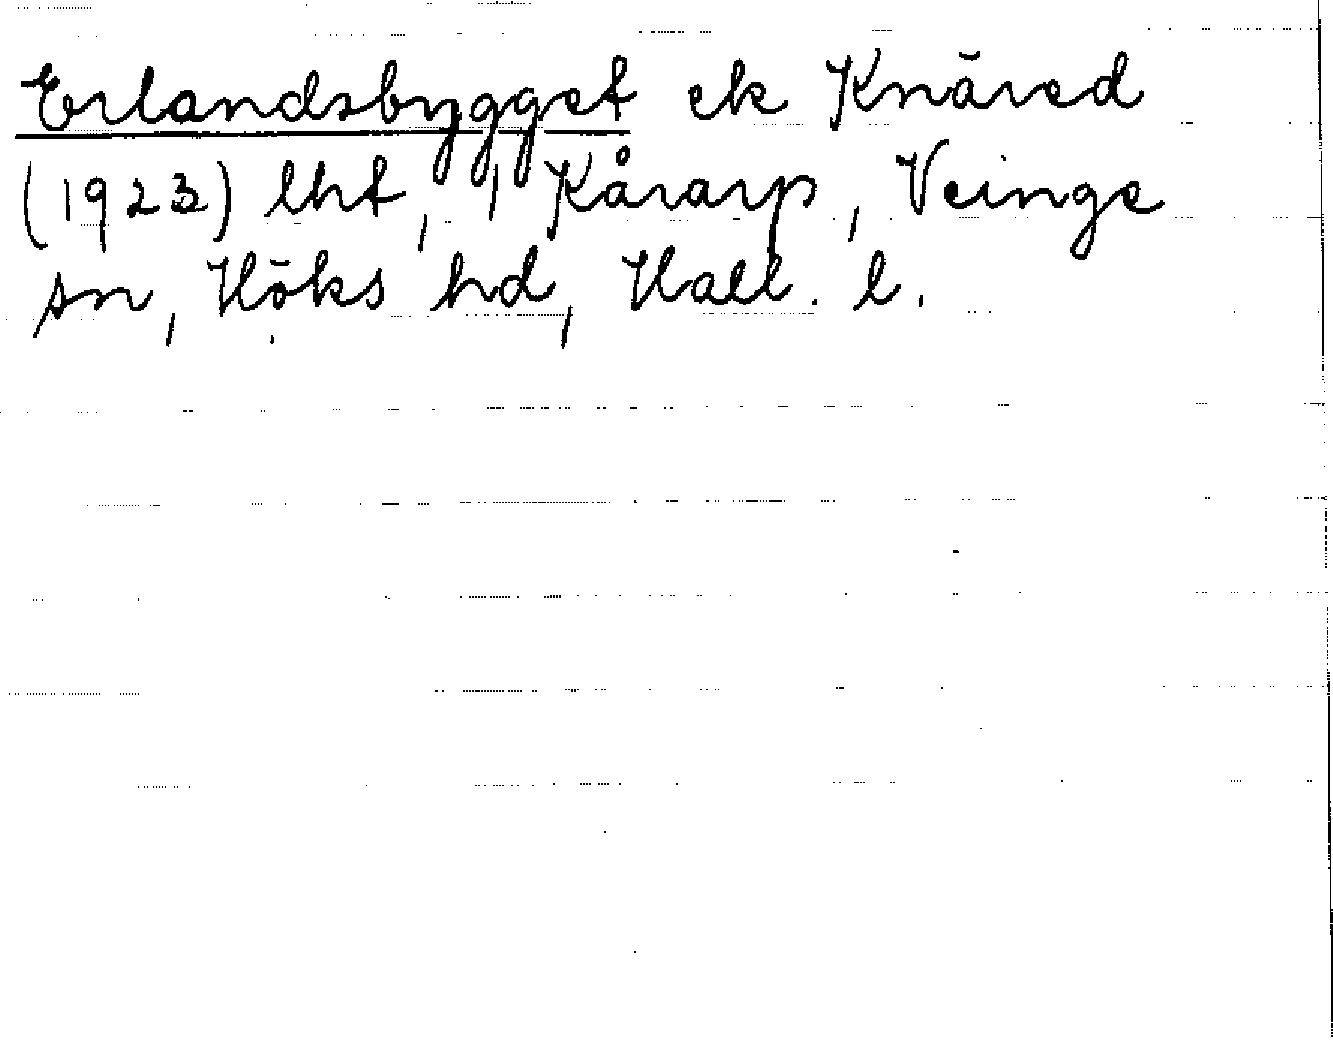 Erlandsbygget ek Knäred
(1923) lht, 1 Kårarp, Veinge
sn, Höks hd, Hall. l.